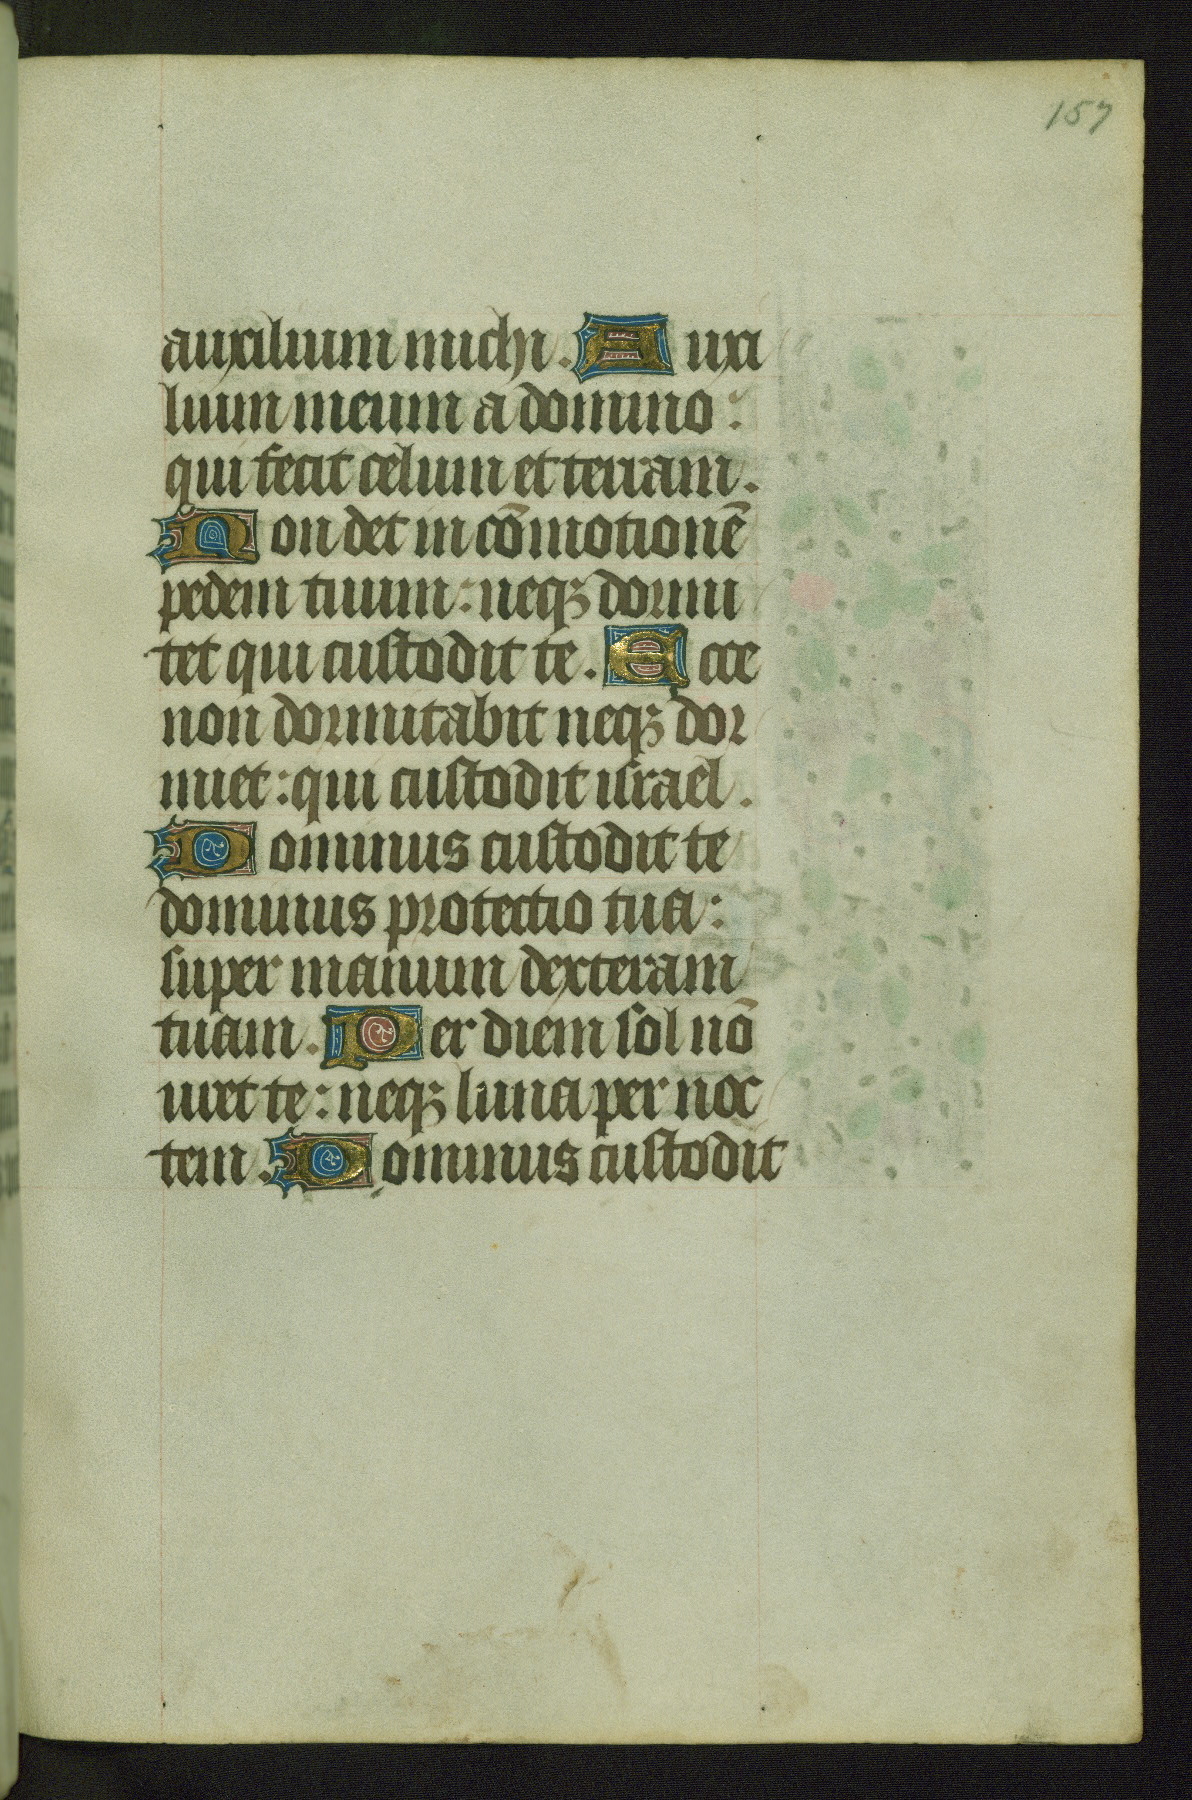 157
auxilium michi. Auxi
lium meum a domino:
qui fecit celum et terram.
Non det in cōmotionē
pedem tuum: neqꝫ dormi
tet qui custodit te. Ecce
non dormitabit neqꝫ dor
miet: qui custodit israel.
Dominus custodit te
dominus protectio tua:
super manum dexteram
tuam. Per diem sol nō
uret te: neqꝫ luna per noc
tem. Dominus custodit